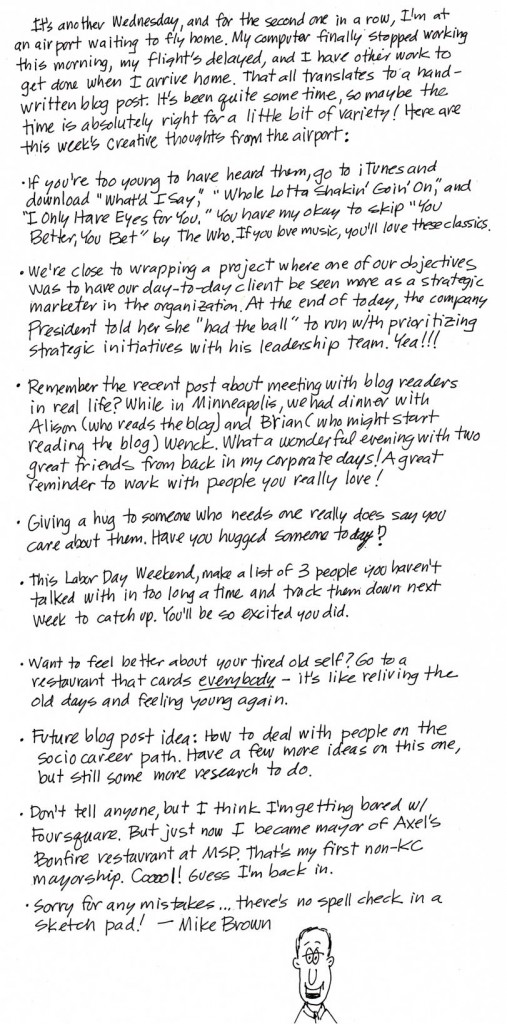 It's another Wednesday, and for the second one in a row, I'm at
an airport waiting to fly home. My computer finally stopped working
this morning, my flight's delayed, and I have other work to
get done when I arrive home. That all translates to a hand-
written blog post. It's been quite some time, so maybe the
time is absolutely right for a little bit of variety! Here are
this week's creative thoughts from the airport:
• If you're too young to have heard them, go to iTunes and
download "What'd I Say," "Whole Lotta Shakin' Goin' On," and
"I Only Have Eyes for You." You have my okay to skip "You
Better, You Bet" by The Who. If you love music, you'll love these classics.
• We're close to wrapping a project where one of our objectives
was to have our day-to-day client be seen more as a strategic
marketer in the organization. At the end of today, the company
President told her she "had the ball" to run with prioritizing
strategic initiatives with his leadership team. Yea!!!
• Remember the recent post about meeting with blog readers
in real life? While in Minneapolis, we had dinner with
Alison (who reads the blog) and Brian (who might start
reading the blog) Wenck. What a wonderful evening with two
great friends from back in my corporate days! A great
reminder to work with people you really love!
• Giving a hug to someone who needs one really does say you
care about them. Have you hugged someone today?
• This Labor Day Weekend, make a list of 3 people you haven't
talked with in too long a time and track them down next
week to catch up. You'll be so excited you did.
• Want to feel better about your tired old self? Go to a
restaurant that cards everybody – it's like reliving the
old days and feeling young again.
• Future blog post idea: How to deal with people on the
socio career path. Have a few more ideas on this one,
but still some more research to do.
• Don't tell anyone, but I think I'm getting bored w/
Foursquare. But just now I became mayor of Axel's
Bonfire restaurant at MSP. That's my first non-KC
mayorship. Coool! Guess I'm back in.
• Sorry for any mistakes... there's no spell check in a
sketch pad! — Mike Brown